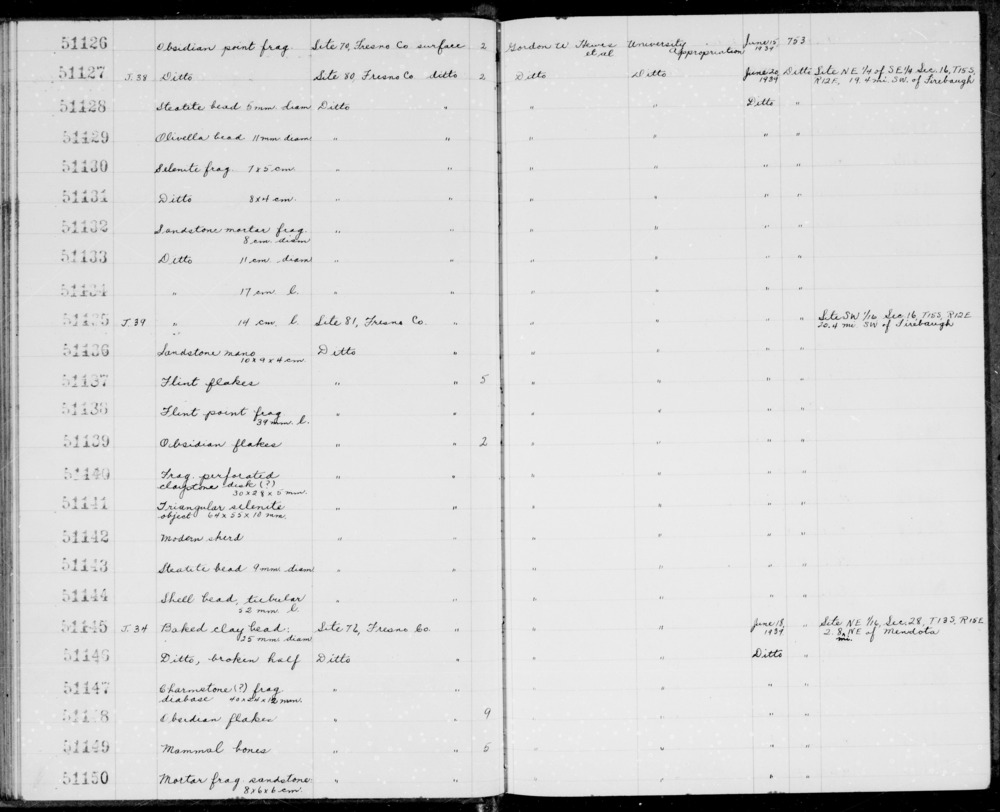 51126 Obsidian point frag. Site 70, Fresno Co surface 2 Gordon W. Hewes et al University Appropriation June 15 1939 753
51127 J.38 Ditto Site 80, Fresno Co ditto 2 Ditto Ditto June 20 1939 Ditto Site NE 1/4 of SE 1/4 Sec. 16, T15S,
R12E, 19.4 mi. SW. of Firebaugh
51128 Steatite bead 5 mm. diam Ditto " " " Ditto "
51129 Olivella bead 11 mm diam " " " " " "
51130 Selenite frag. 7x5 cm. " " " " " "
51131 Ditto 8x4 cm. " " " " " "
51132 Sandstone mortar frag. " " " " " "
8 cm. diam
51133 Ditto 11 cm. diam " " " " " "
51134 " 17 cm l. " " " " " "
51135 J.39 " 14 cm. l. Site 81, Fresno Co. " " " " " Site SW 1/16, Sec 16, T15S, R12E
20.4 mi. SW of Firebaugh
51136 Sandstone mano Ditto " " " " "
10 x 9 x 4 cm.
51137 Flint flakes " " 5 " " " "
51138 Flint point frag " " " " " "
39 mm. l.
51139 Obsidian flakes " " 2 " " " "
51140 Frag. perforated " " " " " "
claystone disk (?)
30x28x5 mm.
51141 Triangular selenite " " " " " "
object 64 x 55 x 10 mm.
51142 Modern sherd " " " " " "
51143 Steatite bead 9 mm. diam " " " " " "
51144 Shell bead, tubular " " " " " "
52 mm. l.
51145 J.34 Baked clay bead: Site 76, Fresno Co. " " " June 18, 1939 " Site NE 1/16, Sec. 28, T13S, R15E
25 mm. diam 2.8 mi. NE of Mendota
51146 Ditto, broken half Ditto " " " Ditto "
51147 Charmstone (?) frag " " " " " "
diabase 40x24x12 mm.
51148 Obsidian flakes " " 9 " " " "
51149 Mammal bones " " 5 " " " "
51150 Mortar frag. sandstone " " " " " "
8x6x6 cm.